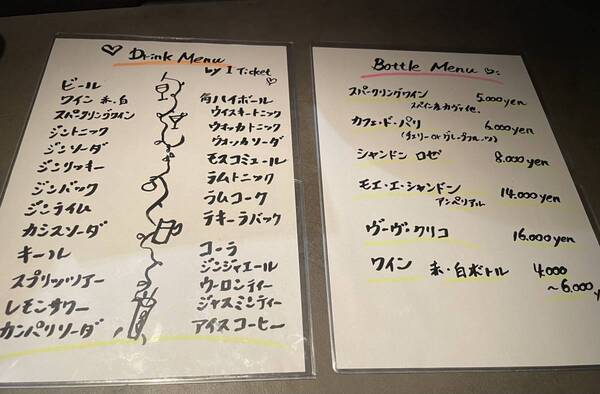 Drink Menu
by 1 Ticket
ビール
ワイン 赤・白
スパークリングワイン
ジントニック
ジンソーダ
ジンリッキー
ジンバック
ジンライム
カシスソーダ
キール
スプリッツァー
レモンサワー
カンパリソーダ
角ハイボール
ウイスキートニック
ウォッカトニック
ウォッカソーダ
モスコミュール
ラムトニック
ラムコーク
テキーラバック
コーラ
ジンジャエール
ウーロンティー
ジャスミンティー
アイスコーヒー
Bottle Menu
スパークリングワイン 5.000yen
スペイン産カヴァ他.
カフェ・ド・パリ 6.000yen
(チェリー or グレープフルーツ)
シャンドン ロゼ 8.000yen
モエ・エ・シャンドン 14.000yen
アンペリアル
ヴーヴ・クリコ 16.000yen
ワイン 赤・白ボトル 4.000
～6.000y